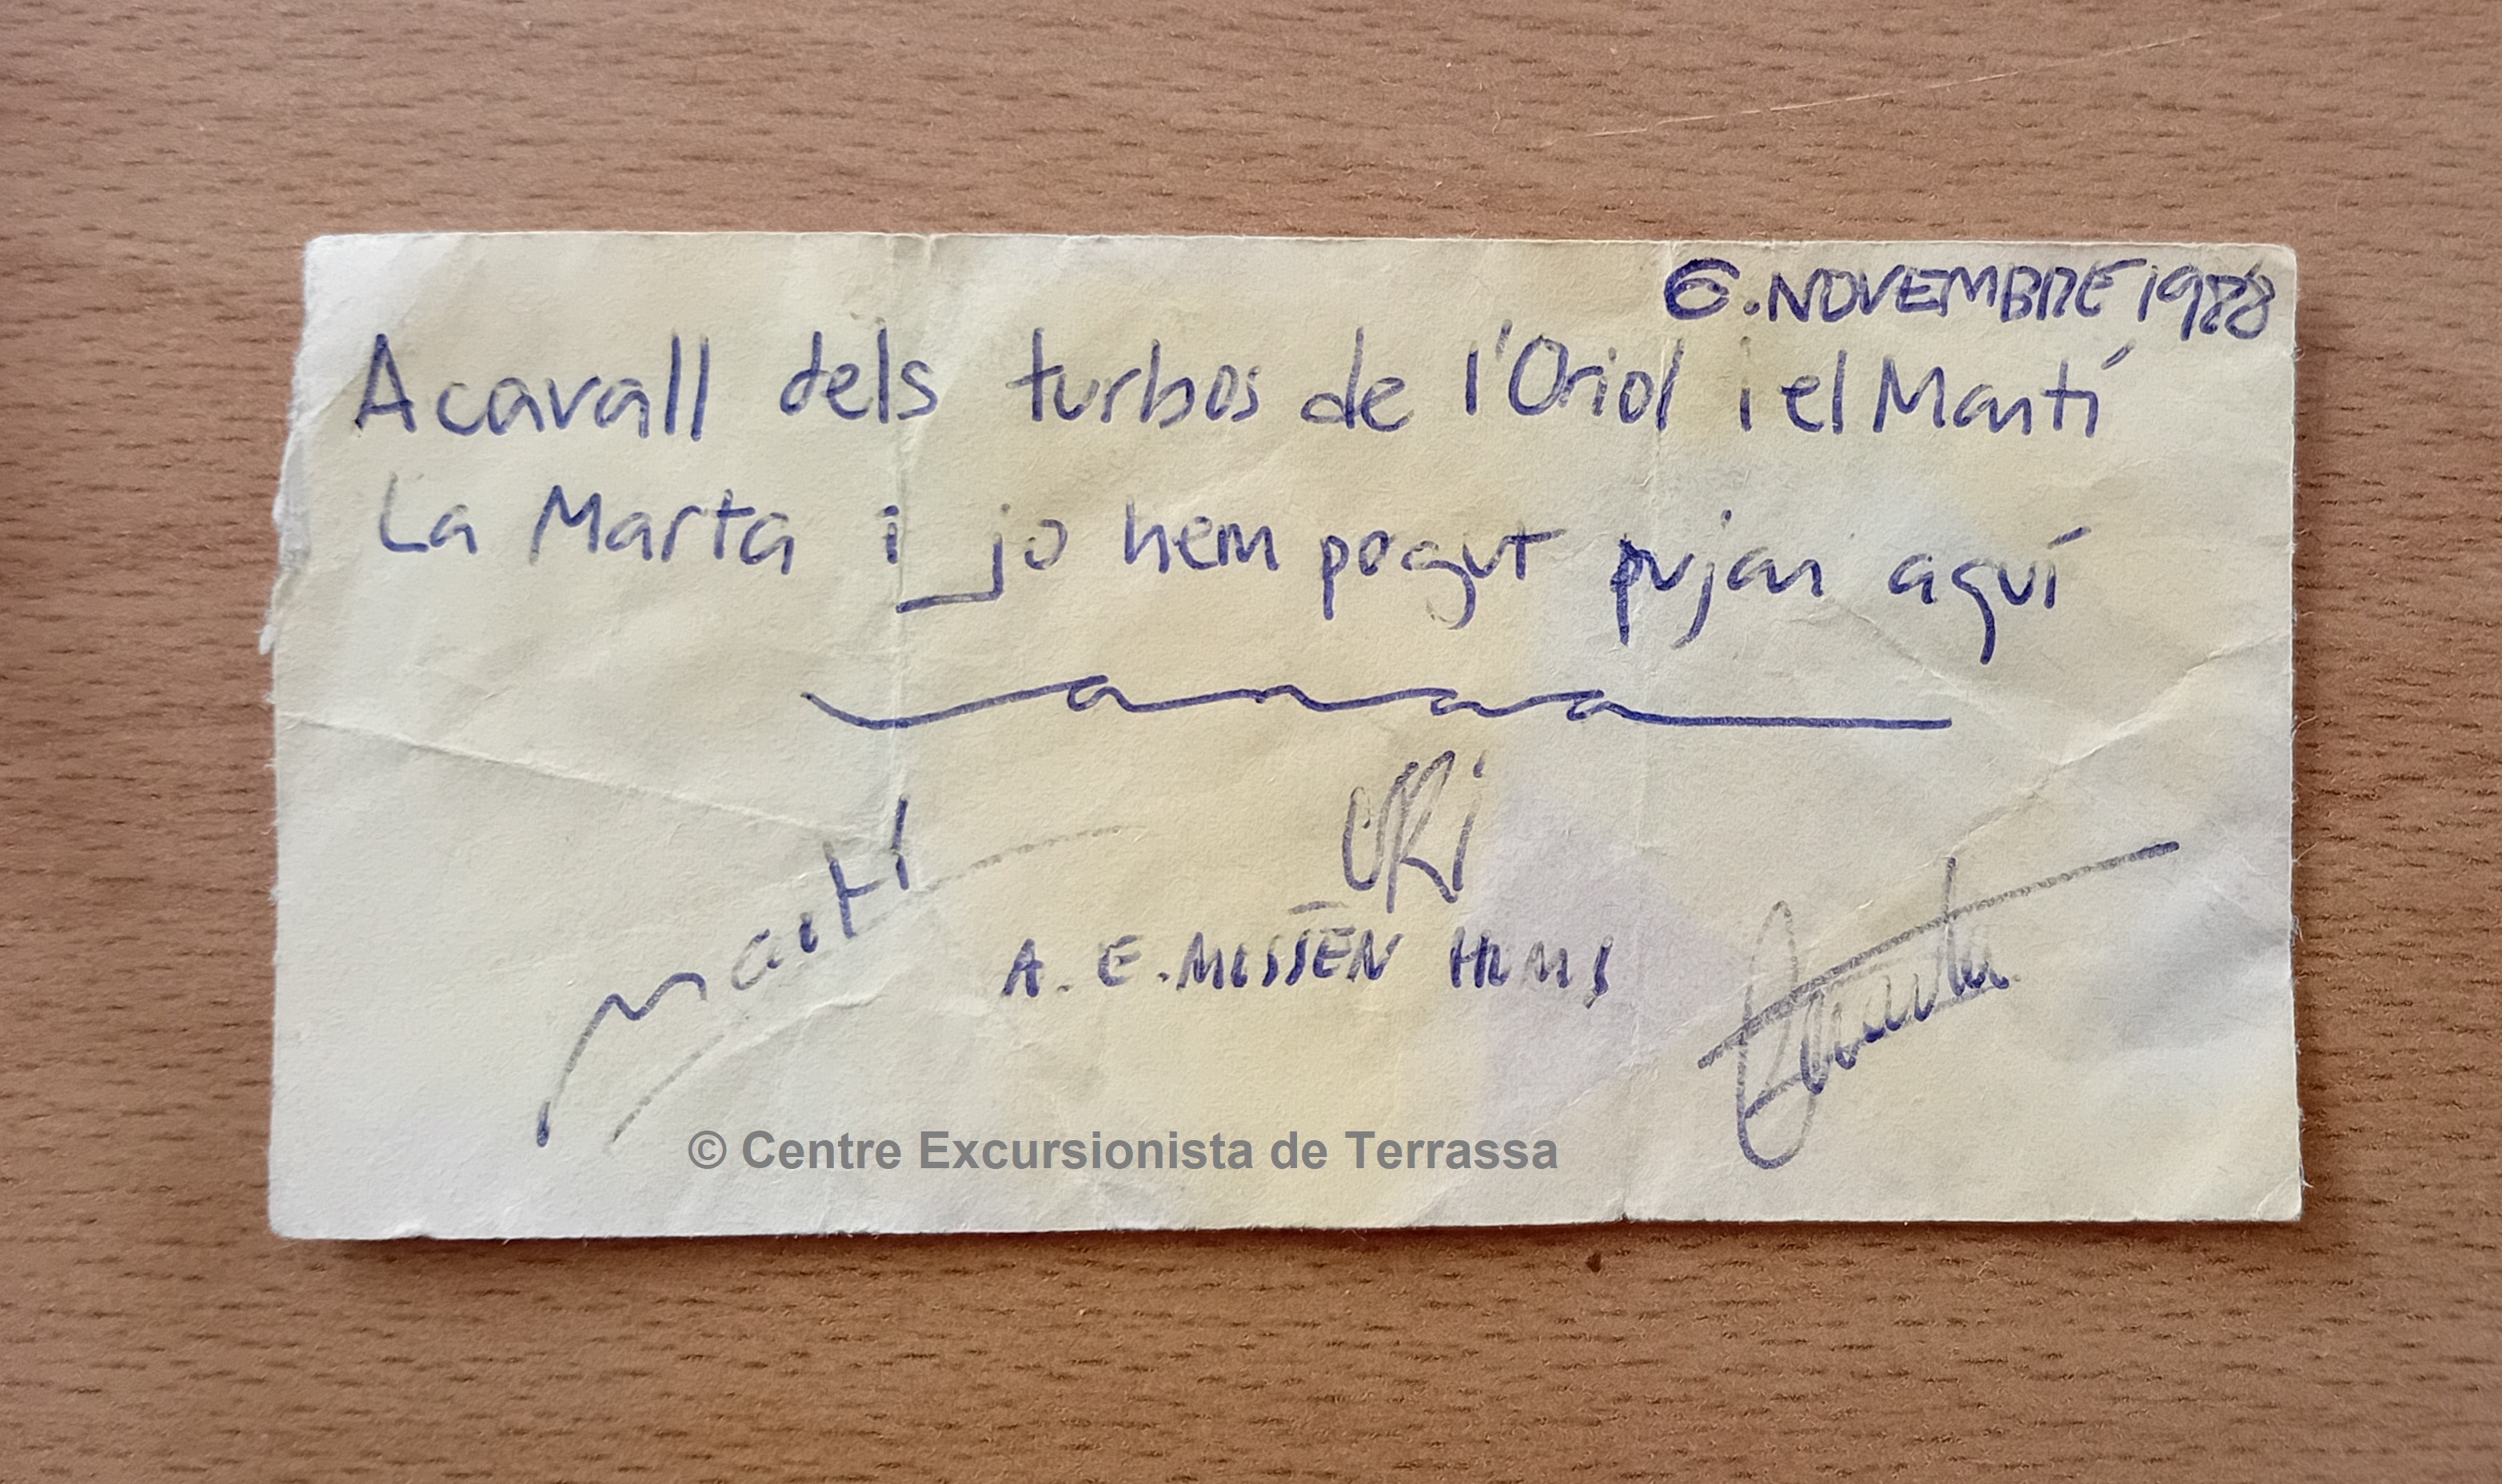 6. NOVEMBRE 1988
A cavall dels turbos de l'Oriol i el Martí
La Marta i jo hem pogut pujar aquí
Martí
URi
A. E. MISSEN
Marta
© Centre Excursionista de Terrassa